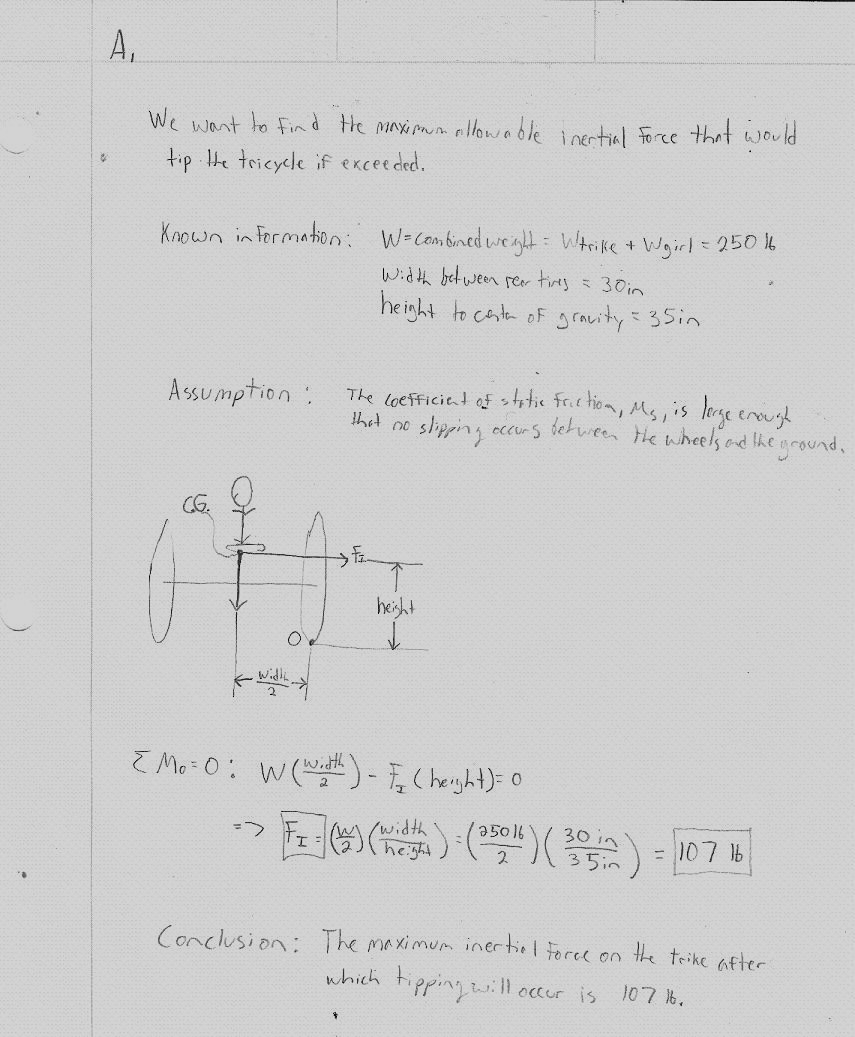 A,
We want to find the maximum allowable inertial force that would
tip the tricycle if exceeded.
Known information: W = combined weight = Wtrike + Wgirl = 250 lb
Width between rear tires = 30in
height to center of gravity = 35in
Assumption: The coefficient of static friction, Ms, is large enough
that no slipping occurs between the wheels and the ground.
C.G.
F_I
height
O
width/2
ΣMo = 0: W(width/2) - F_I(height) = 0
=> F_I = (W/2)(width/height) = (250 lb/2)(30 in/35in) = 107 lb
Conclusion: The maximum inertial force on the trike after
which tipping will occur is 107 lb.